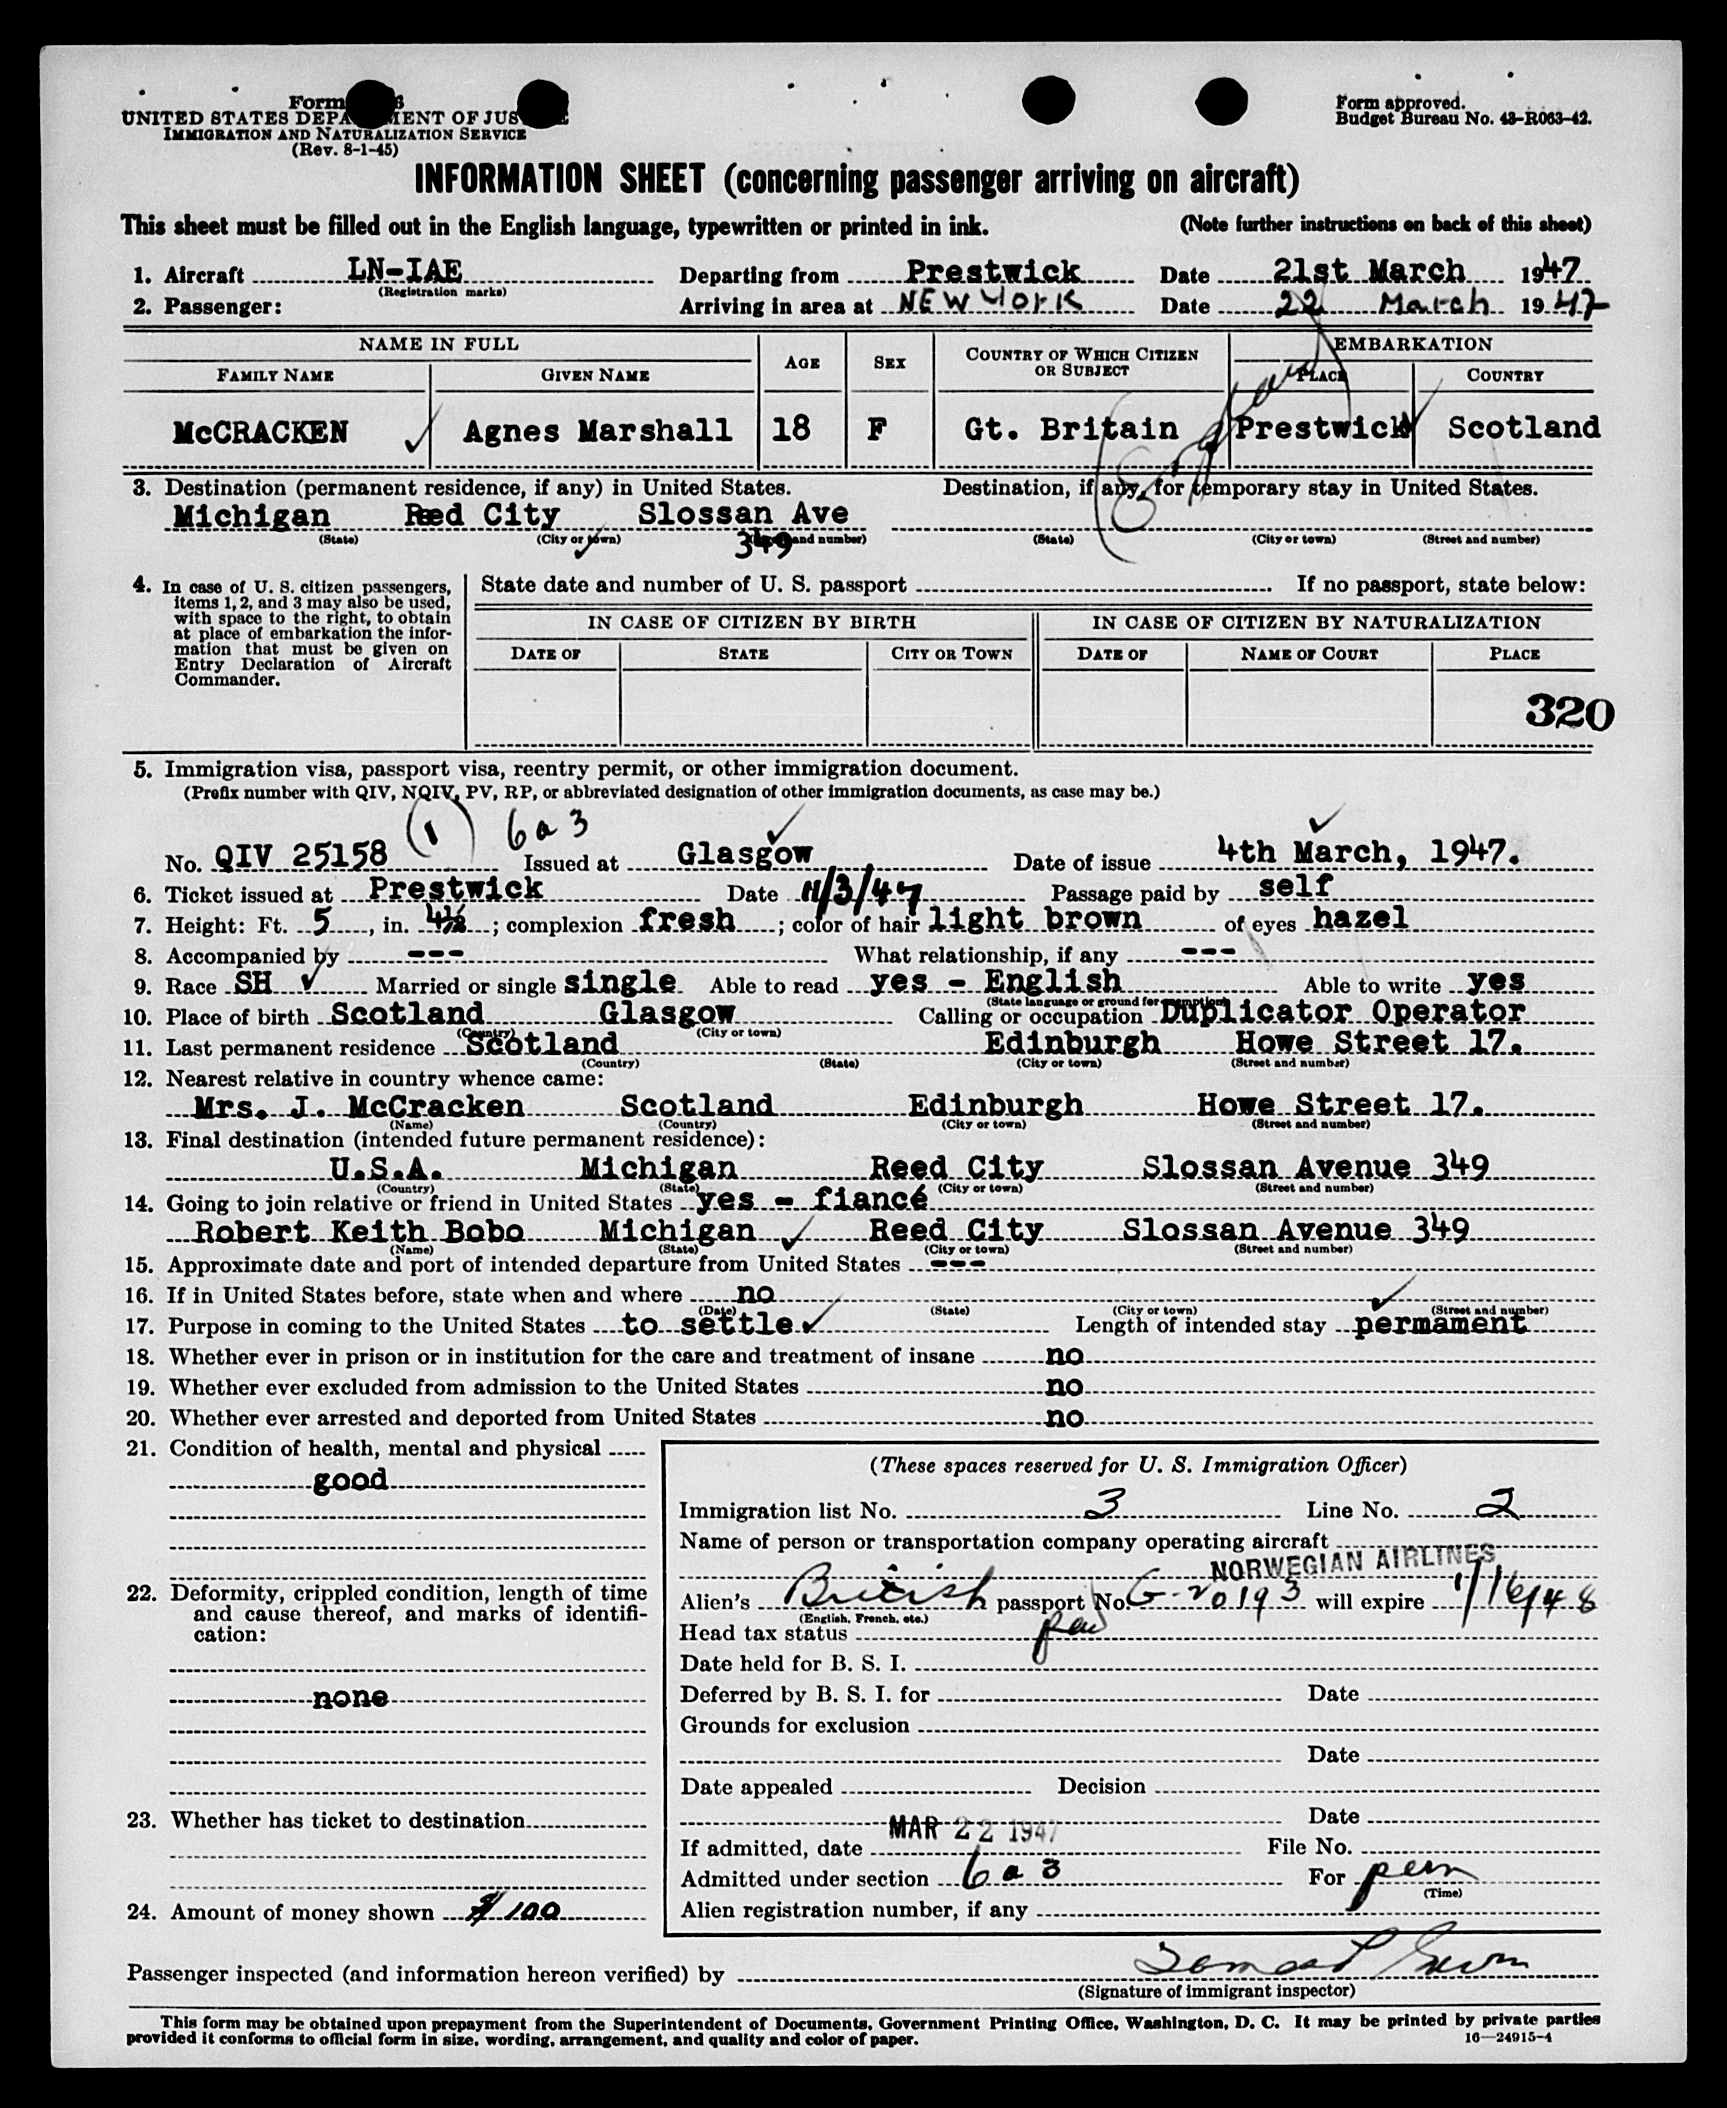 Form
UNITED STATES DEPARTMENT OF JUSTICE
IMMIGRATION AND NATURALIZATION SERVICE
(Rev. 8-1-45)
Form approved.
Budget Bureau No. 43-R063-42.
INFORMATION SHEET (concerning passenger arriving on aircraft)
This sheet must be filled out in the English language, typewritten or printed in ink. (Note further instructions on back of this sheet)
1. Aircraft LN-IAE Departing from Prestwick Date 21st March 1947
(Registration marks)
2. Passenger: Arriving in area at NEW YORK Date 22 March 1947
NAME IN FULL AGE SEX COUNTRY OF WHICH CITIZEN OR SUBJECT EMBARKATION
FAMILY NAME GIVEN NAME PLACE COUNTRY
McCRACKEN Agnes Marshall 18 F Gt. Britain Prestwick Scotland
(England)
3. Destination (permanent residence, if any) in United States. Destination, if any, for temporary stay in United States.
Michigan Reed City Slossan Ave
(State) (City or town) (Street and number) (State) (City or town) (Street and number)
349
4. In case of U. S. citizen passengers, items 1, 2, and 3 may also be used, with space to the right, to obtain at place of embarkation the information that must be given on Entry Declaration of Aircraft Commander.
State date and number of U. S. passport If no passport, state below:
IN CASE OF CITIZEN BY BIRTH IN CASE OF CITIZEN BY NATURALIZATION
DATE OF STATE CITY OR TOWN DATE OF NAME OF COURT PLACE
320
5. Immigration visa, passport visa, reentry permit, or other immigration document.
(Prefix number with QIV, NQIV, PV, RP, or abbreviated designation of other immigration documents, as case may be.)
(1) 6 a 3
No. QIV 25158 Issued at Glasgow Date of issue 4th March, 1947.
6. Ticket issued at Prestwick Date 11/3/47 Passage paid by self
7. Height: Ft. 5, in. 4½; complexion fresh; color of hair light brown of eyes hazel
8. Accompanied by --- What relationship, if any ---
9. Race SH Married or single single Able to read yes - English Able to write yes
(State language or ground for exemption)
10. Place of birth Scotland Glasgow Calling or occupation Duplicator Operator
(Country) (City or town)
11. Last permanent residence Scotland Edinburgh Howe Street 17.
(Country) (State) (City or town) (Street and number)
12. Nearest relative in country whence came:
Mrs. J. McCracken Scotland Edinburgh Howe Street 17.
(Name) (Country) (City or town) (Street and number)
13. Final destination (intended future permanent residence):
U.S.A. Michigan Reed City Slossan Avenue 349
(Country) (State) (City or town) (Street and number)
14. Going to join relative or friend in United States yes - fiancé
Robert Keith Bobo Michigan Reed City Slossan Avenue 349
(Name) (State) (City or town) (Street and number)
15. Approximate date and port of intended departure from United States ---
16. If in United States before, state when and where no
(Date) (State) (City or town) (Street and number)
17. Purpose in coming to the United States to settle Length of intended stay permament
18. Whether ever in prison or in institution for the care and treatment of insane no
19. Whether ever excluded from admission to the United States no
20. Whether ever arrested and deported from United States no
21. Condition of health, mental and physical
good
22. Deformity, crippled condition, length of time and cause thereof, and marks of identification:
none
23. Whether has ticket to destination
24. Amount of money shown $100
(These spaces reserved for U. S. Immigration Officer)
Immigration list No. 3 Line No. 2
Name of person or transportation company operating aircraft
NORWEGIAN AIRLINES
Alien's British passport No. G-20193 will expire 1/16/48
(English, French, etc.)
Head tax status
Date held for B. S. I.
Deferred by B. S. I. for Date
Grounds for exclusion
Date
Date appealed Decision
Date
If admitted, date MAR 22 1947 File No.
Admitted under section 6 a 3 For perm
(Time)
Alien registration number, if any
Passenger inspected (and information hereon verified) by
(Signature of immigrant inspector)
This form may be obtained upon prepayment from the Superintendent of Documents, Government Printing Office, Washington, D. C. It may be printed by private parties
provided it conforms to official form in size, wording, arrangement, and quality and color of paper. 16—24915-4